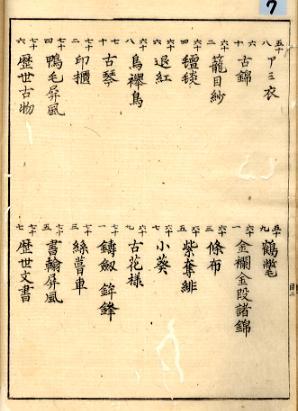 7
五十八 アミ衣
五十九 鶴氅
六十 古錦
六十一 金襴金段諸錦
六十二 籠目紗
六十三 條布
六十四 氊毯
六十五 紫奪緋
六十六 退紅
六十七 小葵
六十八 鳥襷鳥
六十九 古花様
七十 古琴
七十一 鑄劔 鉾鋒
七十二 印櫃
七十三 絲車
七十四 鴨毛屏風
七十五 書翰屏風
七十六 歴世古物
七十七 歴世文書